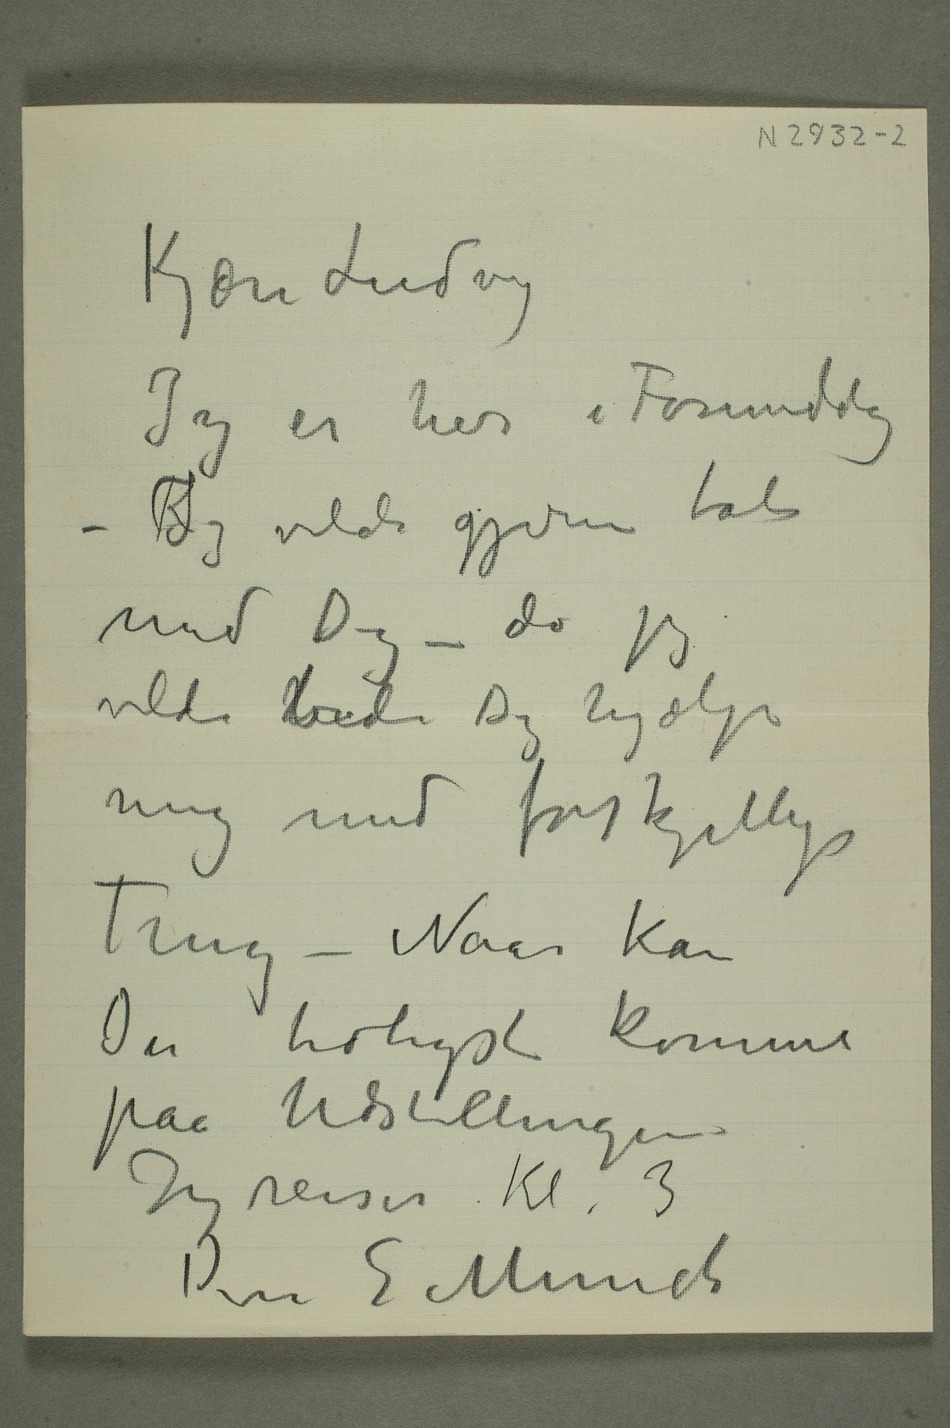 N 2932-2
Kjære Ludvig
Jeg er her i Formiddag
– Jeg vilde gjerne tale
med Dig – da jeg
vilde bede Dig hjælpe
mig med forskjellige
Ting – Naar kan
Du tidligst komme
paa Udstillingen
Jeg reiser Kl. 3
Din E Munch